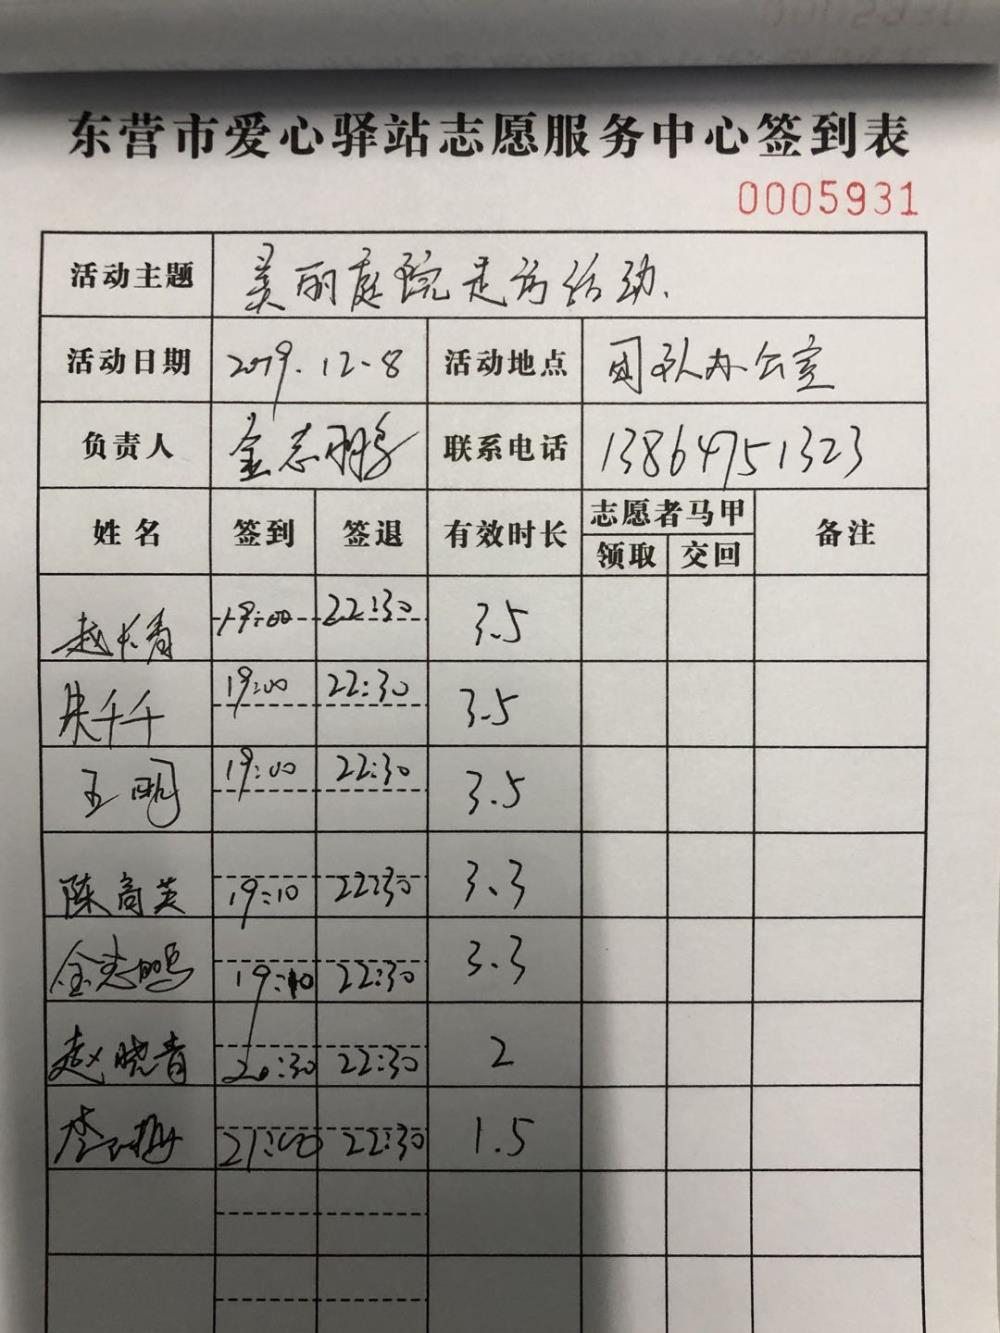 东营市爱心驿站志愿服务中心签到表
0005931
活动主题 美丽庭院走访活动.
活动日期 2019.12-8 活动地点 团队办公室
负责人 金志鹏 联系电话 13864751323
姓名 签到 签退 有效时长 志愿者马甲 备注
领取 交回
赵长青 19:00 22:30 3.5
千千 19:00 22:30 3.5
王鹏 19:00 22:30 3.5
陈高芙 19:10 22:30 3.3
金志鹏 19:10 22:30 3.3
赵晓青 20:30 22:30 2
李 梅 21:00 22:30 1.5